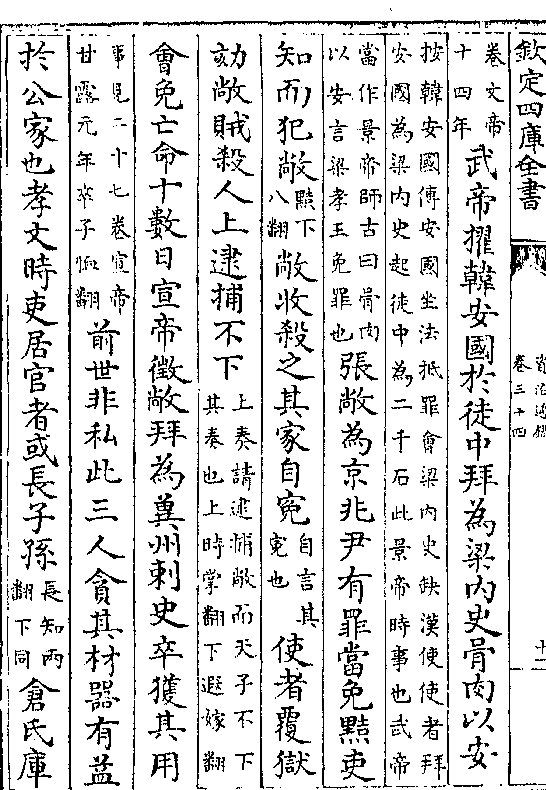 欽定四庫全書
資治通鑑
卷三十四
十二
卷文帝
十四年
武帝擢韓安國於徒中拜為梁内史骨肉以安
按韓安國傳安國坐法抵罪會梁内史缺漢使使者拜
安國為梁内史起徒中為二千石此景帝時事也武帝
當作景帝師古曰骨肉
以安言梁孝王免罪也
張敞為京兆尹有罪當免黠吏
知而犯敞
黠下
八翻
敞收殺之其家自寃
自言其
寃也
使者覆獄
劾敞賊殺人上逮捕不下
上奏請逮捕敞而天子不下
其奏也上時掌翻下遐嫁翻
會免亡命十數日宣帝徵敞拜為冀州刺史卒獲其用
事見二十七卷宣帝
甘露元年卒子恤翻
前世非私此三人貪其材器有益
於公家也孝文時吏居官者或長子孫
長知兩
翻下同
倉氏庫